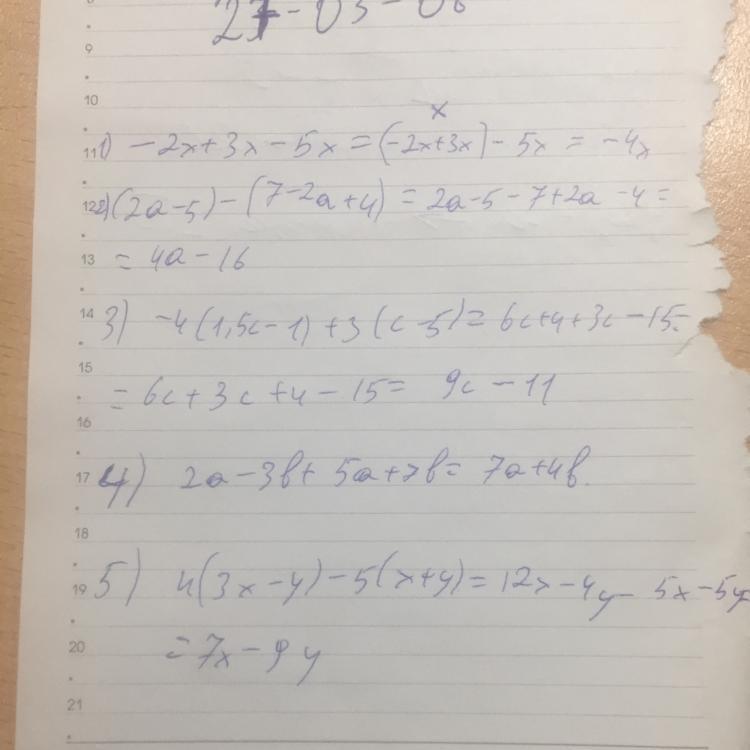 9
10
x
11 1) -2x+3x-5x=(-2x+3x)-5x=-4x
12 2) (2a-5)-(7-2a+4)=2a-5-7+2a-4=
13 =4a-16
14 3) -4(1,5c-1)+3(c-5)=6c+4+3c-15=
15
=6c+3c+4-15=9c-11
16
17 4) 2a-3b+5a+7b=7a+4b.
18
19 5) 4(3x-y)-5(x+y)=12x-4y-5x-5y=
20 =7x-9y
21